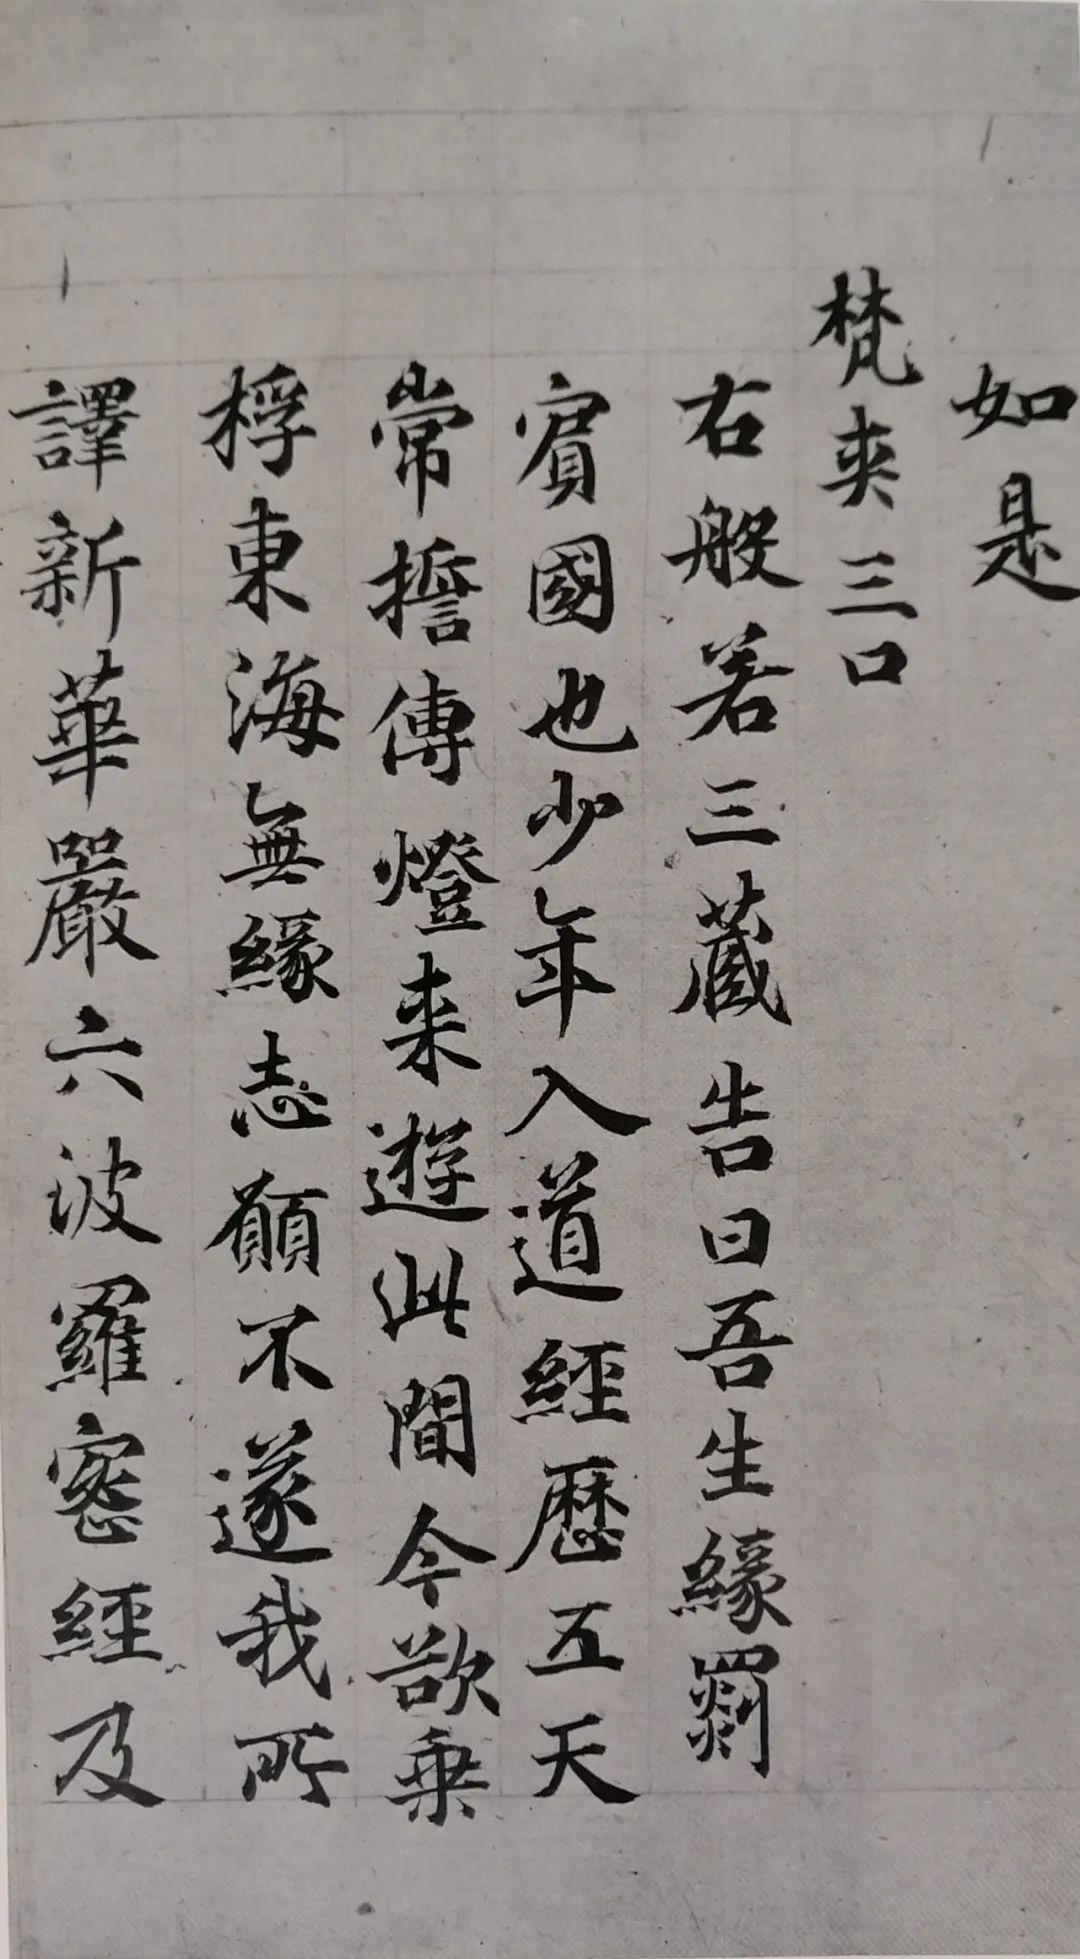 如是
梵夾三口
右般若三藏告曰吾生緣罽
賓國也少年入道經歷五天
常擔傳燈来遊此間今欲乗
桴東海無緣志願不遂我所
譯新華嚴六波羅密經及